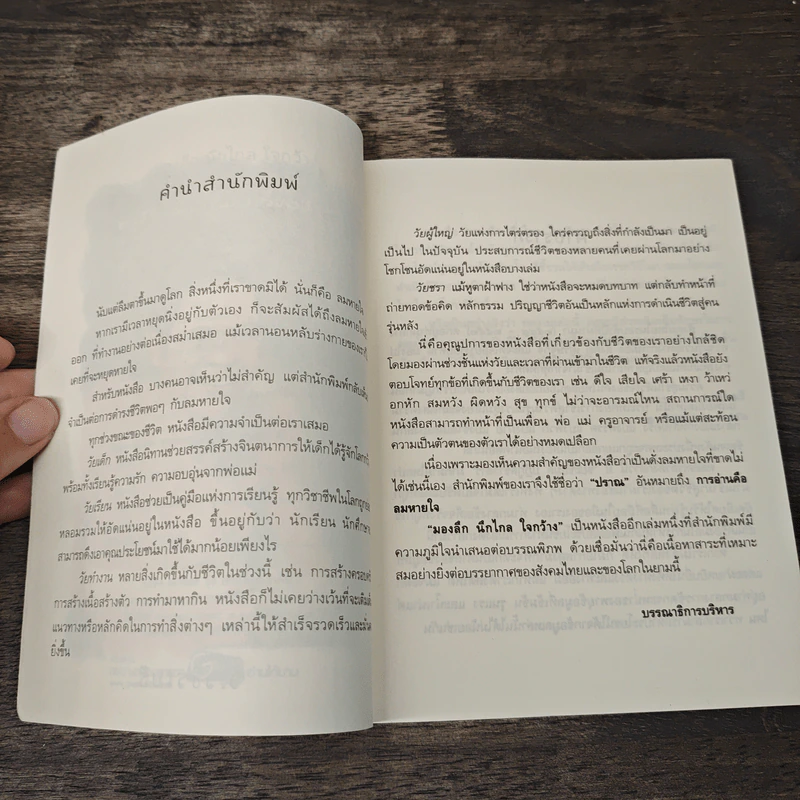 คำนำสำนักพิมพ์
นับแต่ลืมตาขึ้นมาดูโลก สิ่งหนึ่งที่เราขาดมิได้ นั่นก็คือ ลมหายใจ
หากเรามีเวลาหยุดนิ่งอยู่กับตัวเอง ก็จะสัมผัสได้ถึงลมหายใจ
ออก ที่ทำงานอย่างต่อเนื่องสม่ำเสมอ แม้เวลานอนหลับร่างกายของเรา
เคยที่จะหยุดหายใจ
สำหรับหนังสือ บางคนอาจเห็นว่าไม่สำคัญ แต่สำนักพิมพ์กลับ
จำเป็นต่อการดำรงชีวิตพอๆ กับลมหายใจ
ทุกช่วงขณะของชีวิต หนังสือมีความจำเป็นต่อเราเสมอ
วัยเด็ก หนังสือนิทานช่วยสรรค์สร้างจินตนาการให้เด็กได้รู้จักโลก
พร้อมทั้งเรียนรู้ความรัก ความอบอุ่นจากพ่อแม่
วัยเรียน หนังสือช่วยเป็นคู่มือแห่งการเรียนรู้ ทุกวิชาชีพในโลก
หลอมรวมให้อัดแน่นอยู่ในหนังสือ ขึ้นอยู่กับว่า นักเรียน นักศึกษา
สามารถดึงเอาคุณประโยชน์มาใช้ได้มากน้อยเพียงไร
วัยทำงาน หลายสิ่งเกิดขึ้นกับชีวิตในช่วงนี้ เช่น การสร้างครอบครัว
การสร้างเนื้อสร้างตัว การทำมาหากิน หนังสือก็ไม่เคยว่างเว้นที่จะเติม
แนวทางหรือหลักคิดในการทำสิ่งต่างๆ เหล่านี้ให้สำเร็จรวดเร็วและ
ยิ่งขึ้น
วัยผู้ใหญ่ วัยแห่งการไตร่ตรอง ใคร่ครวญถึงสิ่งที่กำลังเป็นมา เป็นอยู่
เป็นไป ในปัจจุบัน ประสบการณ์ชีวิตของหลายคนที่เคยผ่านโลกมาอย่าง
โชกโชนอัดแน่นอยู่ในหนังสือบางเล่ม
วัยชรา แม้หูตาฝ้าฟาง ใช่ว่าหนังสือจะหมดบทบาท แต่กลับทำหน้าที่
ถ่ายทอดข้อคิด หลักธรรม ปริญญาชีวิตอันเป็นหลักแห่งการดำเนินชีวิตสู่คน
รุ่นหลัง
นี่คือคุณูปการของหนังสือที่เกี่ยวข้องกับชีวิตของเราอย่างใกล้ชิด
โดยมองผ่านช่วงชั้นแห่งวัยและเวลาที่ผ่านเข้ามาในชีวิต แท้จริงแล้วหนังสือยัง
ตอบโจทย์ทุกข้อที่เกิดขึ้นกับชีวิตของเรา เช่น ดีใจ เสียใจ เศร้า เหงา ว้าเหว่
อกหัก สมหวัง ผิดหวัง สุข ทุกข์ ไม่ว่าจะอารมณ์ไหน สถานการณ์ใด
หนังสือสามารถทำหน้าที่เป็นเพื่อน พ่อ แม่ ครูอาจารย์ หรือแม้แต่สะท้อน
ความเป็นตัวตนของตัวเราได้อย่างหมดเปลือก
เนื่องเพราะมองเห็นความสำคัญของหนังสือว่าเป็นดั่งลมหายใจที่ขาดไม่
ได้เช่นนี้เอง สำนักพิมพ์ของเราจึงใช้ชื่อว่า “ปราณ” อันหมายถึง การอ่านคือ
ลมหายใจ
“มองลึก นึกไกล ใจกว้าง” เป็นหนังสืออีกเล่มหนึ่งที่สำนักพิมพ์มี
ความภูมิใจนำเสนอต่อบรรณพิภพ ด้วยเชื่อมั่นว่านี่คือเนื้อหาสาระที่เหมาะ
สมอย่างยิ่งต่อบรรยากาศของสังคมไทยและของโลกในยามนี้
บรรณาธิการบริหาร